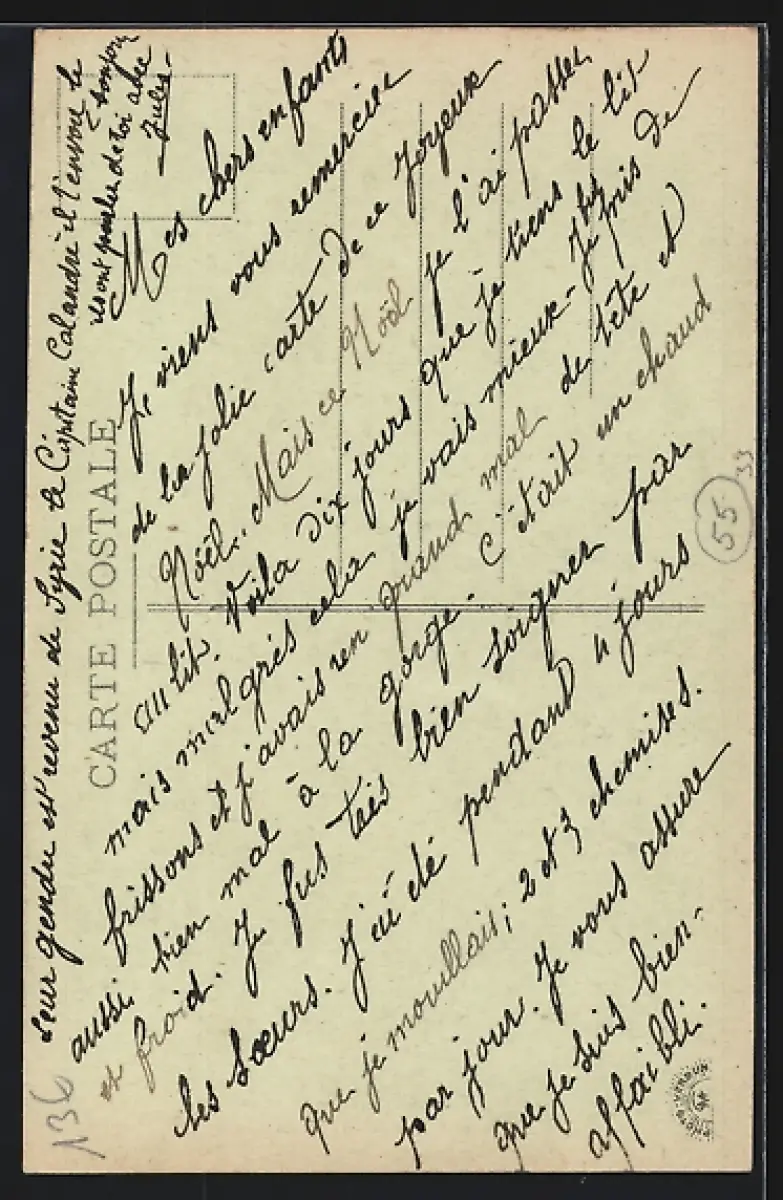 Mes chers enfants
Je viens vous remercier
de la jolie carte de ce Joyeux
Noël. Mais ce Noël je l'ai passer
au lit. Voila dix jours que je tiens le lit
mais malgrés cela je vais mieux. Je fus pris de
frissons et j'avais un grand mal de tête et
aussi bien mal à la gorge. C'était un chaud
et froid. Je fus très bien soigner par
les Sœurs. J'ai été pendant 4 jours
que je mouillais; 2 et 3 chemises.
par jour. Je vous assure
que je suis bien
affaibli.
Leur gendre est revenu de Syrie le Capitaine Calandre il t'envoie le
bonjour
ils ont parler de toi avec
Jules.
CARTE POSTALE
55
33
136